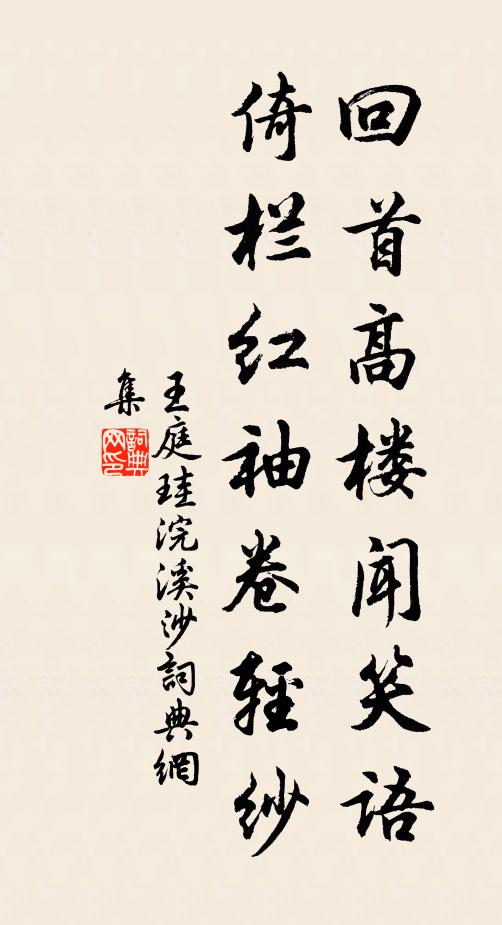 回首高楼闻笑语
倚栏红袖卷轻纱
王庭珪浣溪沙詞典網
集
詞典网印